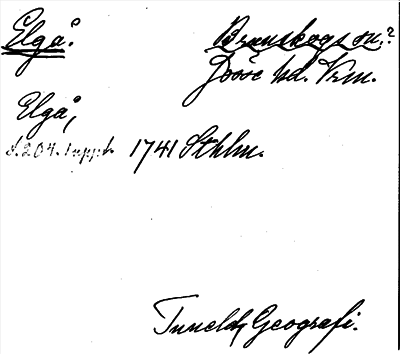 Elgå. Brunskogs sn.?
Jösse hd. Vrm.
Elgå,
s. 204. 1 uppl. 1741 Sthlm.
Tunelds Geografi.